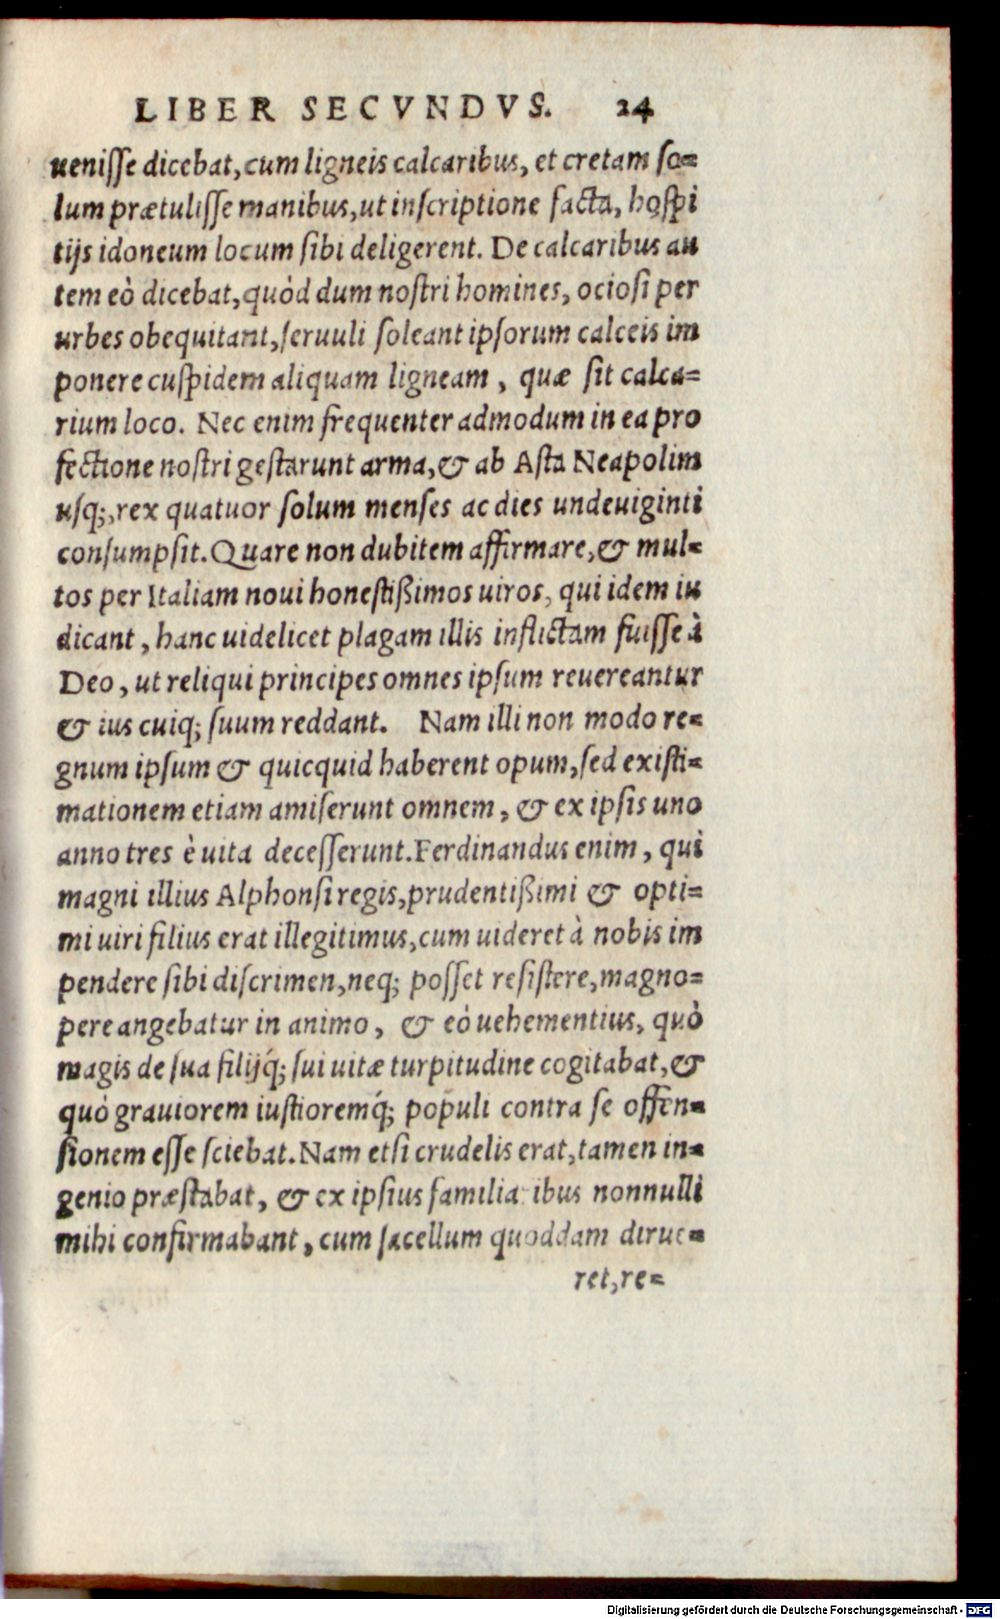 LIBER SECVNDVS. 24
uenisse dicebat, cum ligneis calcaribus, et cretam so=
lum prætulisse manibus, ut inscriptione facta, hospi
tijs idoneum locum sibi deligerent. De calcaribus au
tem eò dicebat, quòd dum nostri homines, ociosi per
urbes obequitant, seruuli soleant ipsorum calceis im
ponere cuspidem aliquam ligneam, quæ sit calca=
rium loco. Nec enim frequenter admodum in ea pro
fectione nostri gestarunt arma, & ab Asta Neapolim
usq;, rex quatuor solum menses ac dies undeuiginti
consumpsit. Quare non dubitem affirmare, & mul=
tos per Italiam noui honestißimos uiros, qui idem iu
dicant, hanc uidelicet plagam illis inflictam fuisse à
Deo, ut reliqui principes omnes ipsum reuereantur
& ius cuiq; suum reddant. Nam illi non modo re=
gnum ipsum & quicquid haberent opum, sed existi=
mationem etiam amiserunt omnem, & ex ipsis uno
anno tres è uita decesserunt. Ferdinandus enim, qui
magni illius Alphonsi regis, prudentißimi & opti=
mi uiri filius erat illegitimus, cum uideret à nobis im
pendere sibi discrimen, neq; posset resistere, magno=
pere angebatur in animo, & eò uehementius, quò
magis de sua filijq́; sui uitæ turpitudine cogitabat, &
quò grauiorem iustioremq́; populi contra se offen=
sionem esse sciebat. Nam etsi crudelis erat, tamen in=
genio præstabat, & ex ipsius familia ibus nonnulli
mihi confirmabant, cum sacellum quoddam dirue=
ret, re=
Digitalisierung gefördert durch die Deutsche Forschungsgemeinschaft - DFG